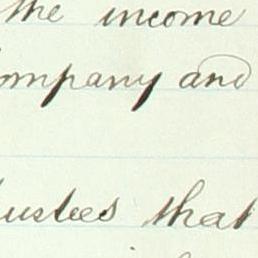 the income
ompany and
ustees that